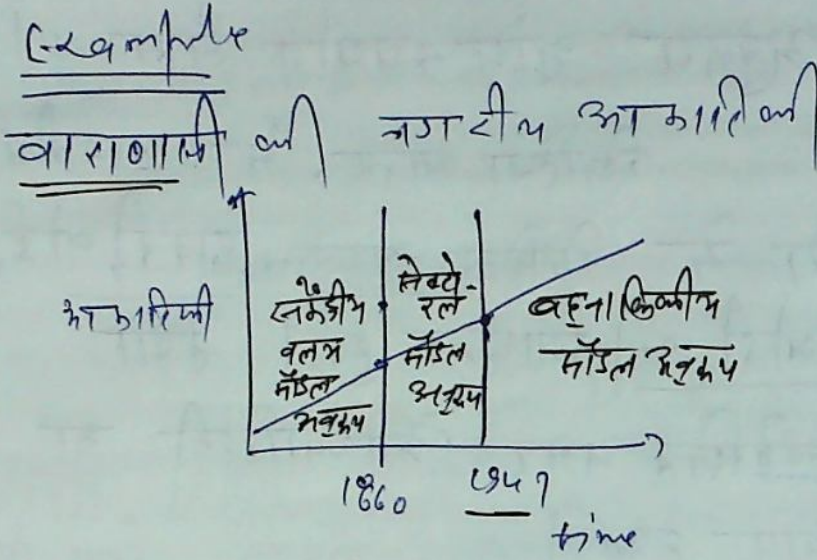 Example
वाराणसी की नगरीय आकारिकी
आकारिकी
संकेंद्रीय
वलय
मॉडल
अनुरूप
सेक्टो-
रल
मॉडल
अनुरूप
बहुनाभिकीय
मॉडल अनुरूप
1860
1947
time